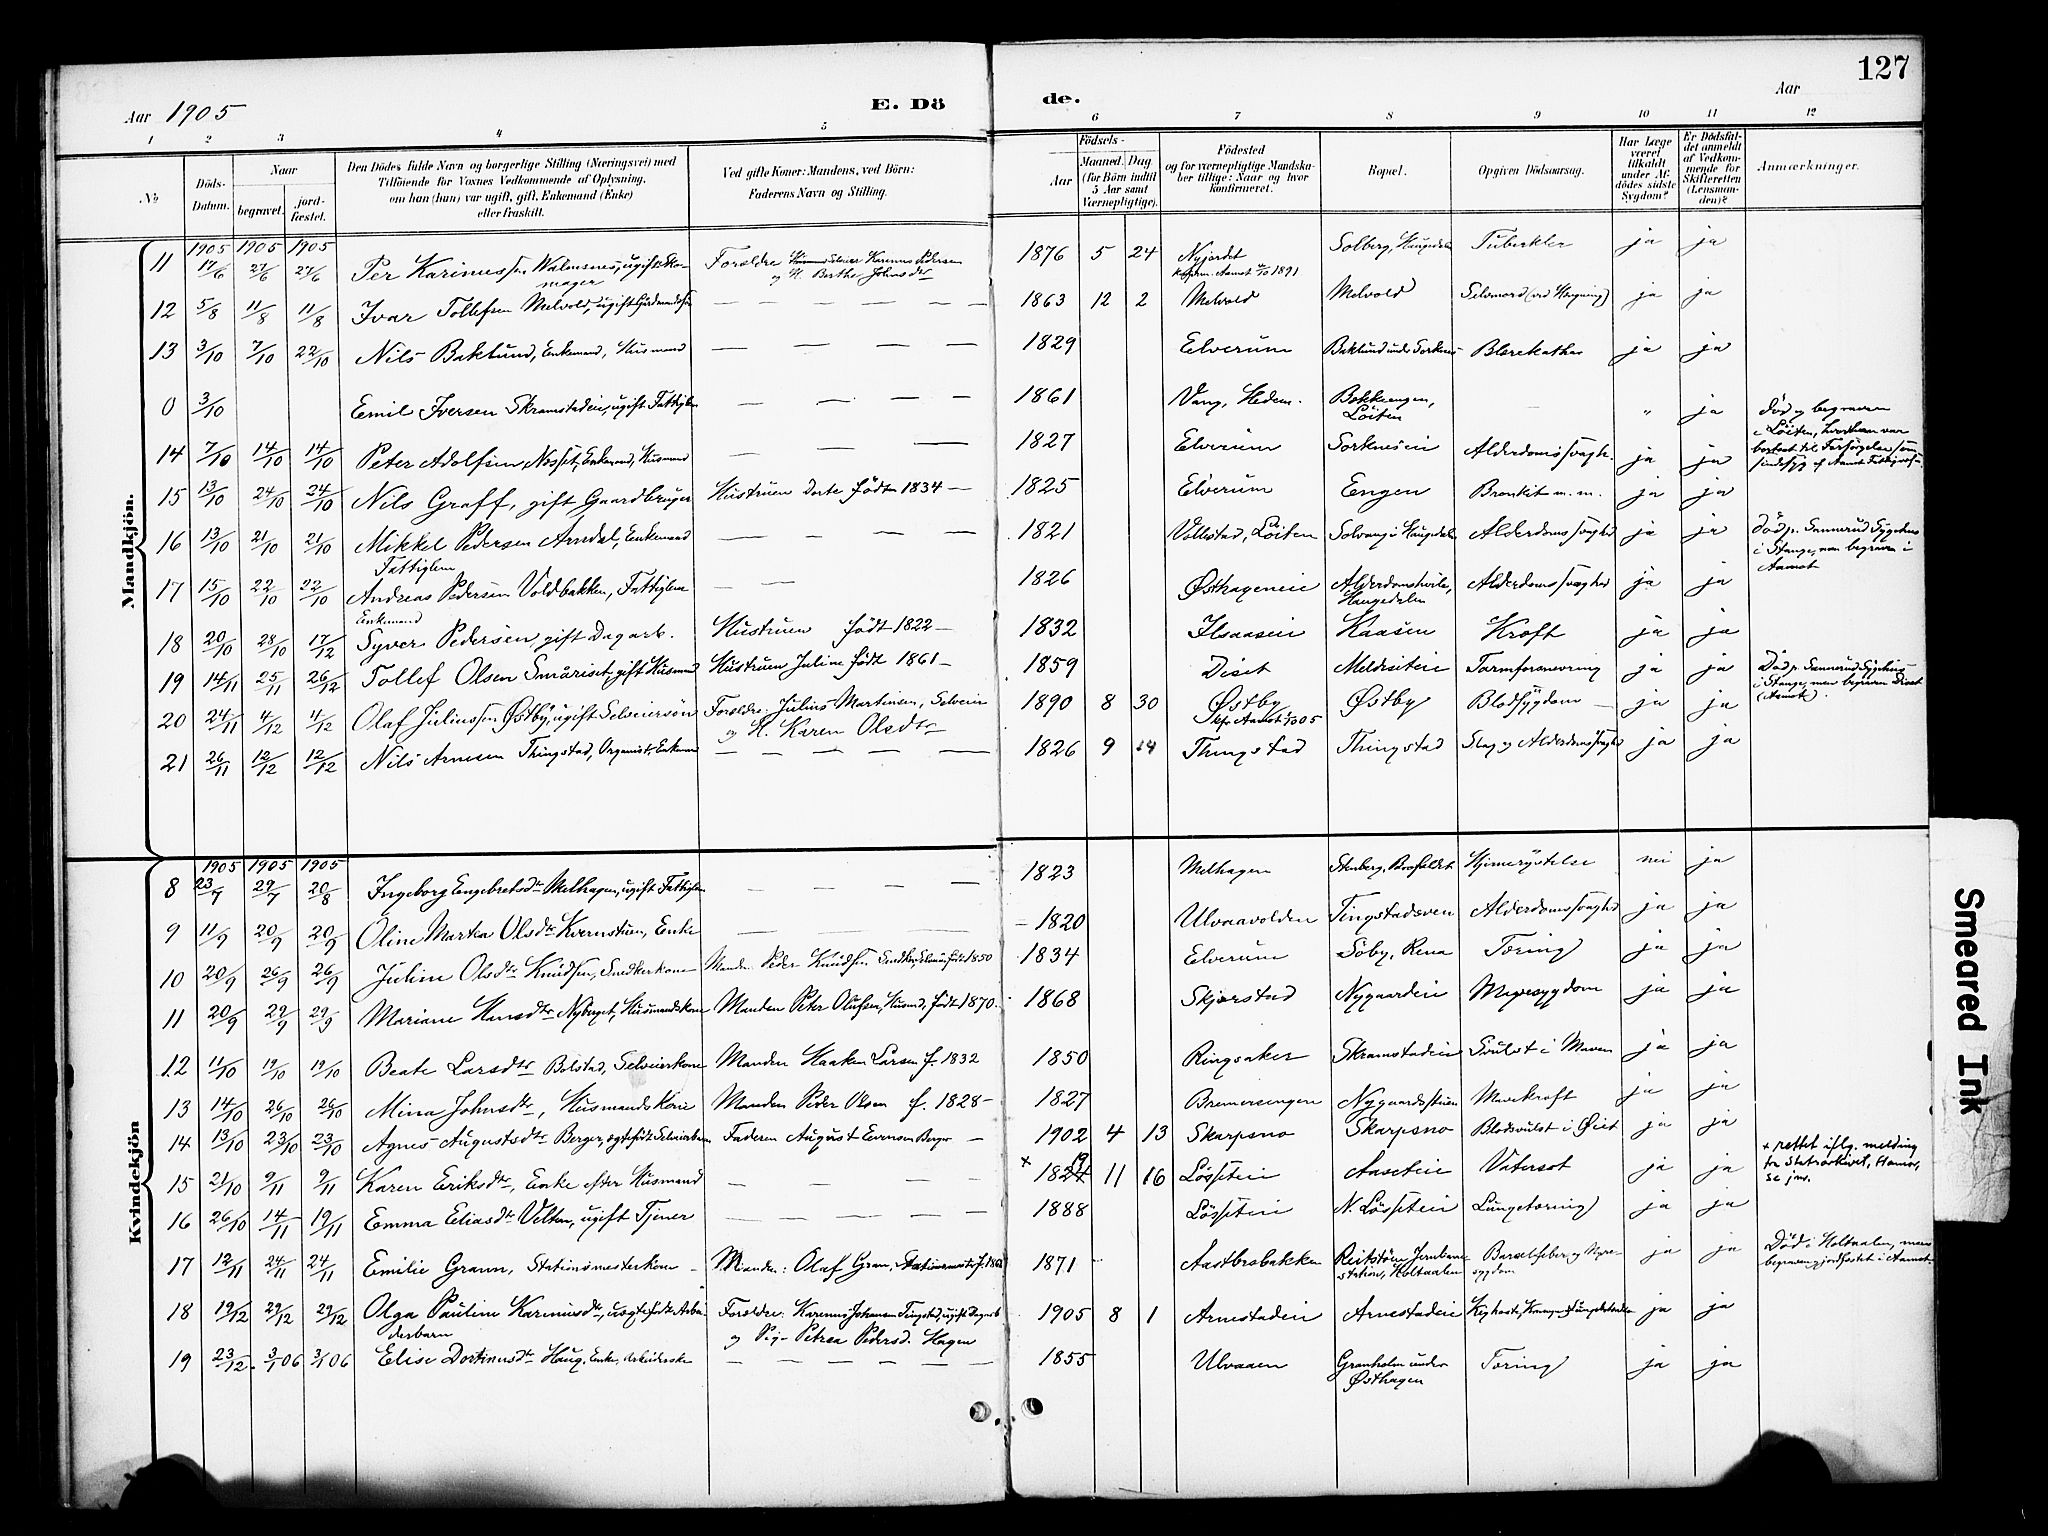 127
Aar 1905
E. Dö
de.
Aar
1 2 3 4 5 6 7 8 9 10 11 12
No
Döds-Datum.
Naar
begravet.
jord-fæstet.
Den Dödes fulde Navn og borgerlige Stilling (Næringsvei) med
Tilföiende for Voxnes Vedkommende af Oplysning,
om han (hun) var ugift, gift, Enkemand (Enke)
eller fraskilt.
Ved gifte Koner: Mandens, ved Börn:
Faderens Navn og Stilling.
Födsels-
Aar
Maaned. Dag
(for Börn indtil
5 Aar samt
Værnepligtige).
Födested
og for værnepligtige Mandska-
ber tillige: Naar og hvor
konfirmeret.
Bopæl.
Opgiven Dödsaarsag.
Har Læge
været
tilkaldt
under Af-
dödes sidste
Sygdom?
Er Dödsfal-
det anmeldt
af Vedkom-
mende for
Skifteretten
(Lensman-
den)?
Anmærkninger.
Mandkjön.
1905 1905 1905
11 17/6 27/6 27/6 Per Karinussen Walmsnes, ugift Sko-
mager Forældre Karinus Pedersen
og H. Berthe Johnsdtr 1876 5 24 Nyjordet Solberg, Haugedalen Tuberkler ja ja
Konfirm. Aamot 1891
12 5/8 11/8 11/8 Ivar Tollefsen Melvold, ugift Gårdmandssøn — 1863 12 2 Melvold Melvold Selvmord (ved Hængning) ja ja
13 3/10 7/10 22/10 Nils Baklund, Enkemand, Husmand — 1829 Elverum Baklund under Sorknes Blærekathar ja ja
0 3/10 Emil Iversen Skramstadeie, ugift Fattiglem — 1861 Vang, Hedem. Bekkeengen,
Löiten — " ja Död og begraven
i Löiten, hvor han var
bortsat til Forsörgelse som
sindssyg af Aamot Fattigvæs.
14 7/10 14/10 14/10 Peter Adolfsen Nesset, Enkemand, Husmand — 1827 Elverum Sorkneseie Alderdomssvagh. ja ja
15 13/10 24/10 24/10 Nils Graff, gift, Gaardbruger Hustruen Dorte født 1834 — 1825 Elverum Engen Bronkit m.m. ja ja
16 13/10 21/10 21/10 Mikkel Pedersen Arndal, Enkemand
Fattiglem — 1821 Vollestad, Löiten Solvang i Haugedalen Alderdomssvaghed ja ja Död p. Sannerud Sygehus
i Stange, men begraven i
Aamot
17 15/10 22/10 22/10 Andreas Pedersen Voldbakken, Fattiglem
Enkemand — 1826 Østhageneie Alderdomshvile,
Haugedalen Alderdomssvaghed ja ja
18 20/10 28/10 17/12 Syver Pedersen, gift Dagarb. Hustruen født 1822 — 1832 Ilsaaseie Kaasen Kræft ja ja
19 14/11 25/11 26/12 Tollef Olsen Småriset, gift Husmand Hustruen Juline født 1861 — 1859 Diset Meldseteie Tarmforsnevring ja ja Död p. Sannerud Sygehus
i Stange, men begraven Diset
(Aamot).
20 24/11 4/12 4/12 Olaf Juliussen Østby, ugift Selveiersøn Forældre: Julius Martinsen, Selveier
og H. Karen Olsdtr 1890 8 30 Østby Østby Blodsygdom — ja ja
Kfr. Aamot 1905
21 26/11 12/12 12/12 Nils Arnesen Thingstad, Organist, Enkem — 1826 9 14 Thingstad Thingstad Slag og Alderdomssvaghed ja ja
Kvindekjön
1905 1905 1905
8 23/7 29/7 20/8 Ingeborg Engebretsdtr Melhagen, ugift Fattiglem — 1823 Melhagen Stenberg, Bovsfeldet Hjernerystelse nei ja
9 11/9 20/9 20/9 Oline Martea Olsdtr Kvernstuen, Enke — 1820 Ulvaavolden Tingstadsveen Alderdomssvaghed ja ja
10 20/9 26/9 26/9 Juline Olsdtr Knudsen, Snedkerkone Manden Peder Knudsen Snedker, født 1850 1834 Elverum Söby, Rena Tæring ja ja
11 20/9 29/9 29/9 Mariane Hansdtr Nyberget, Husmandskone Manden Peter Olufsen, Husmd, født 1870. 1868 Skjærstad Nygaardeie Nyresygdom ja ja
12 11/10 19/10 19/10 Beate Larsdtr Bolstad, Selveierkone Manden Haaken Larsen f. 1832 1850 Ringsaker Skramstadeie Svulst i Maven ja ja
13 14/10 26/10 26/10 Mina Johnsdtr, Husmandskone Manden Peder Olsen f. 1828 — 1827 Bremersengen Nygaardsstuen Mavekræft ja ja
14 13/10 23/10 23/10 Agnes Augustsdtr Berger, ægtefödt Selveierbarn Faderen August Evensen Berger — 1902 4 13 Skarpsno Skarpsno Blodsvulst i Øiet ja ja
15 21/10 9/11 9/11 Karen Eriksdtr, Enke efter Husmand — × 1824 19 11 16 Lösseteie Aaseteie Vatersot ja ja × rettet iflg. melding
fra Statsarkivet, Hamar,
se jnr.
16 26/10 14/11 19/11 Emma Eliasdtr Velten, ugift Tjener — 1888 Lösseteie N. Lösseteie Lungetæring ja ja
17 12/11 24/11 24/11 Emilie Gram, Stationsmesterkone — Manden: Olaf Gram, Stationsmester f. 1868 1871 Aasthosbakken Reitstöen Jernbane-
station, Holtaalen Barselfeber og Nyre-
sygdom ja ja Död i Holtaalen, men
begraven, jordfæstet i Aamot
18 19/12 29/12 29/12 Olga Pauline Karinusdtr, uægtefödt Arbei-
derbarn Forældre: Karinus Johansen Tingstad, ugift Dagarb
og Pig- Petrea Pedersd. Hagen 1905 8 1 Arnestadeie Arnestadeie Kighoste, Krampe, Lungebetændelse ja ja
19 23/12. 3/1 06 3/1 06 Elise Dortinusdtr Haug, Enke, Arbeiderske — 1855 Ulvaaen Granholm under
Østhagen Tæring ja ja
Smeared Ink